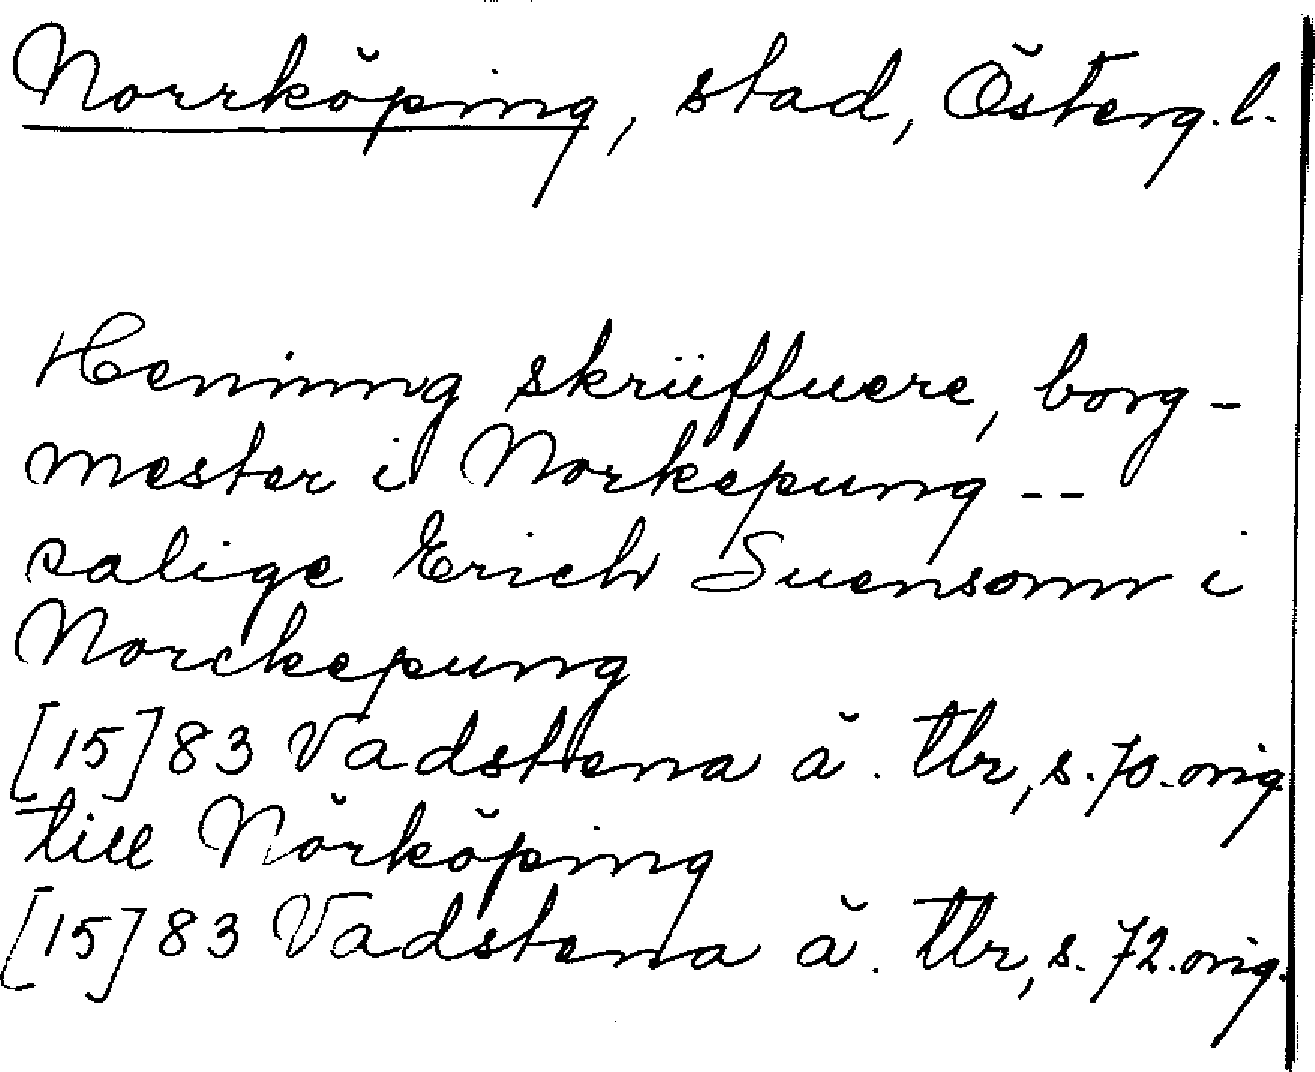 Norrköping, stad, Österg.l.
Henning skrüffuere, borg-
mester i Norkepung --
salige Erich Suensonn i
Norckepung
[15]83 Vadstena ä. Tbr, s. 70. orig
till Nörköping
[15]83 Vadstena ä. Tbr, s. 72. orig.